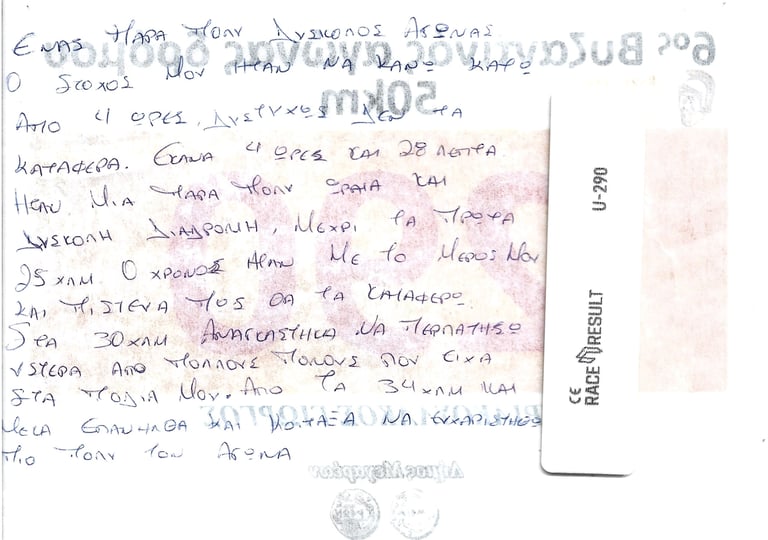 ΕΝΑΣ ΠΑΡΑ ΠΟΛΥ ΔΥΣΚΟΛΟΣ ΑΓΩΝΑΣ
6ος Βυζαντινός αγώνας δρόμου
50km
Ο ΣΤΟΧΟΣ ΜΟΥ ΗΤΑΝ ΝΑ ΚΑΝΩ ΚΑΤΩ
ΑΠΟ 4 ΩΡΕΣ. ΔΥΣΤΥΧΩΣ ΔΕΝ ΤΑ
ΚΑΤΑΦΕΡΑ. ΕΚΑΝΑ 4 ΩΡΕΣ ΚΑΙ 28 ΛΕΠΤΑ
ΗΤΑΝ ΜΙΑ ΠΑΡΑ ΠΟΛΥ ΩΡΑΙΑ ΚΑΙ
ΔΥΣΚΟΛΗ ΔΙΑΔΡΟΜΗ, ΜΕΧΡΙ ΤΑ ΠΡΩΤΑ
25 ΧΛΜ Ο ΧΡΟΝΟΣ ΗΤΑΝ ΜΕ ΤΟ ΜΕΡΟΣ ΜΟΥ
ΚΑΙ ΠΙΣΤΕΥΑ ΠΩΣ ΘΑ ΤΑ ΚΑΤΑΦΕΡΩ
ΣΤΑ 30 ΧΛΜ ΑΝΑΓΚΑΣΤΗΚΑ ΝΑ ΠΕΡΠΑΤΗΣΩ
ΥΣΤΕΡΑ ΑΠΟ ΠΟΛΛΟΥΣ ΠΟΝΟΥΣ ΠΟΥ ΕΙΧΑ
ΣΤΑ ΠΟΔΙΑ ΜΟΥ. ΑΠΟ ΤΑ 34 ΧΛΜ ΚΑΙ
ΜΕΤΑ ΕΠΑΝΗΛΘΑ ΚΑΙ ΚΟΙΤΑΞΑ ΝΑ ΕΥΧΑΡΙΣΤΗΘΩ
ΠΙΟ ΠΟΛΥ ΤΟΝ ΑΓΩΝΑ
290
ΓΙΩΡΓΟΣ
Δήμος Μεγαρέων
U-290
CE
RACE RESULT